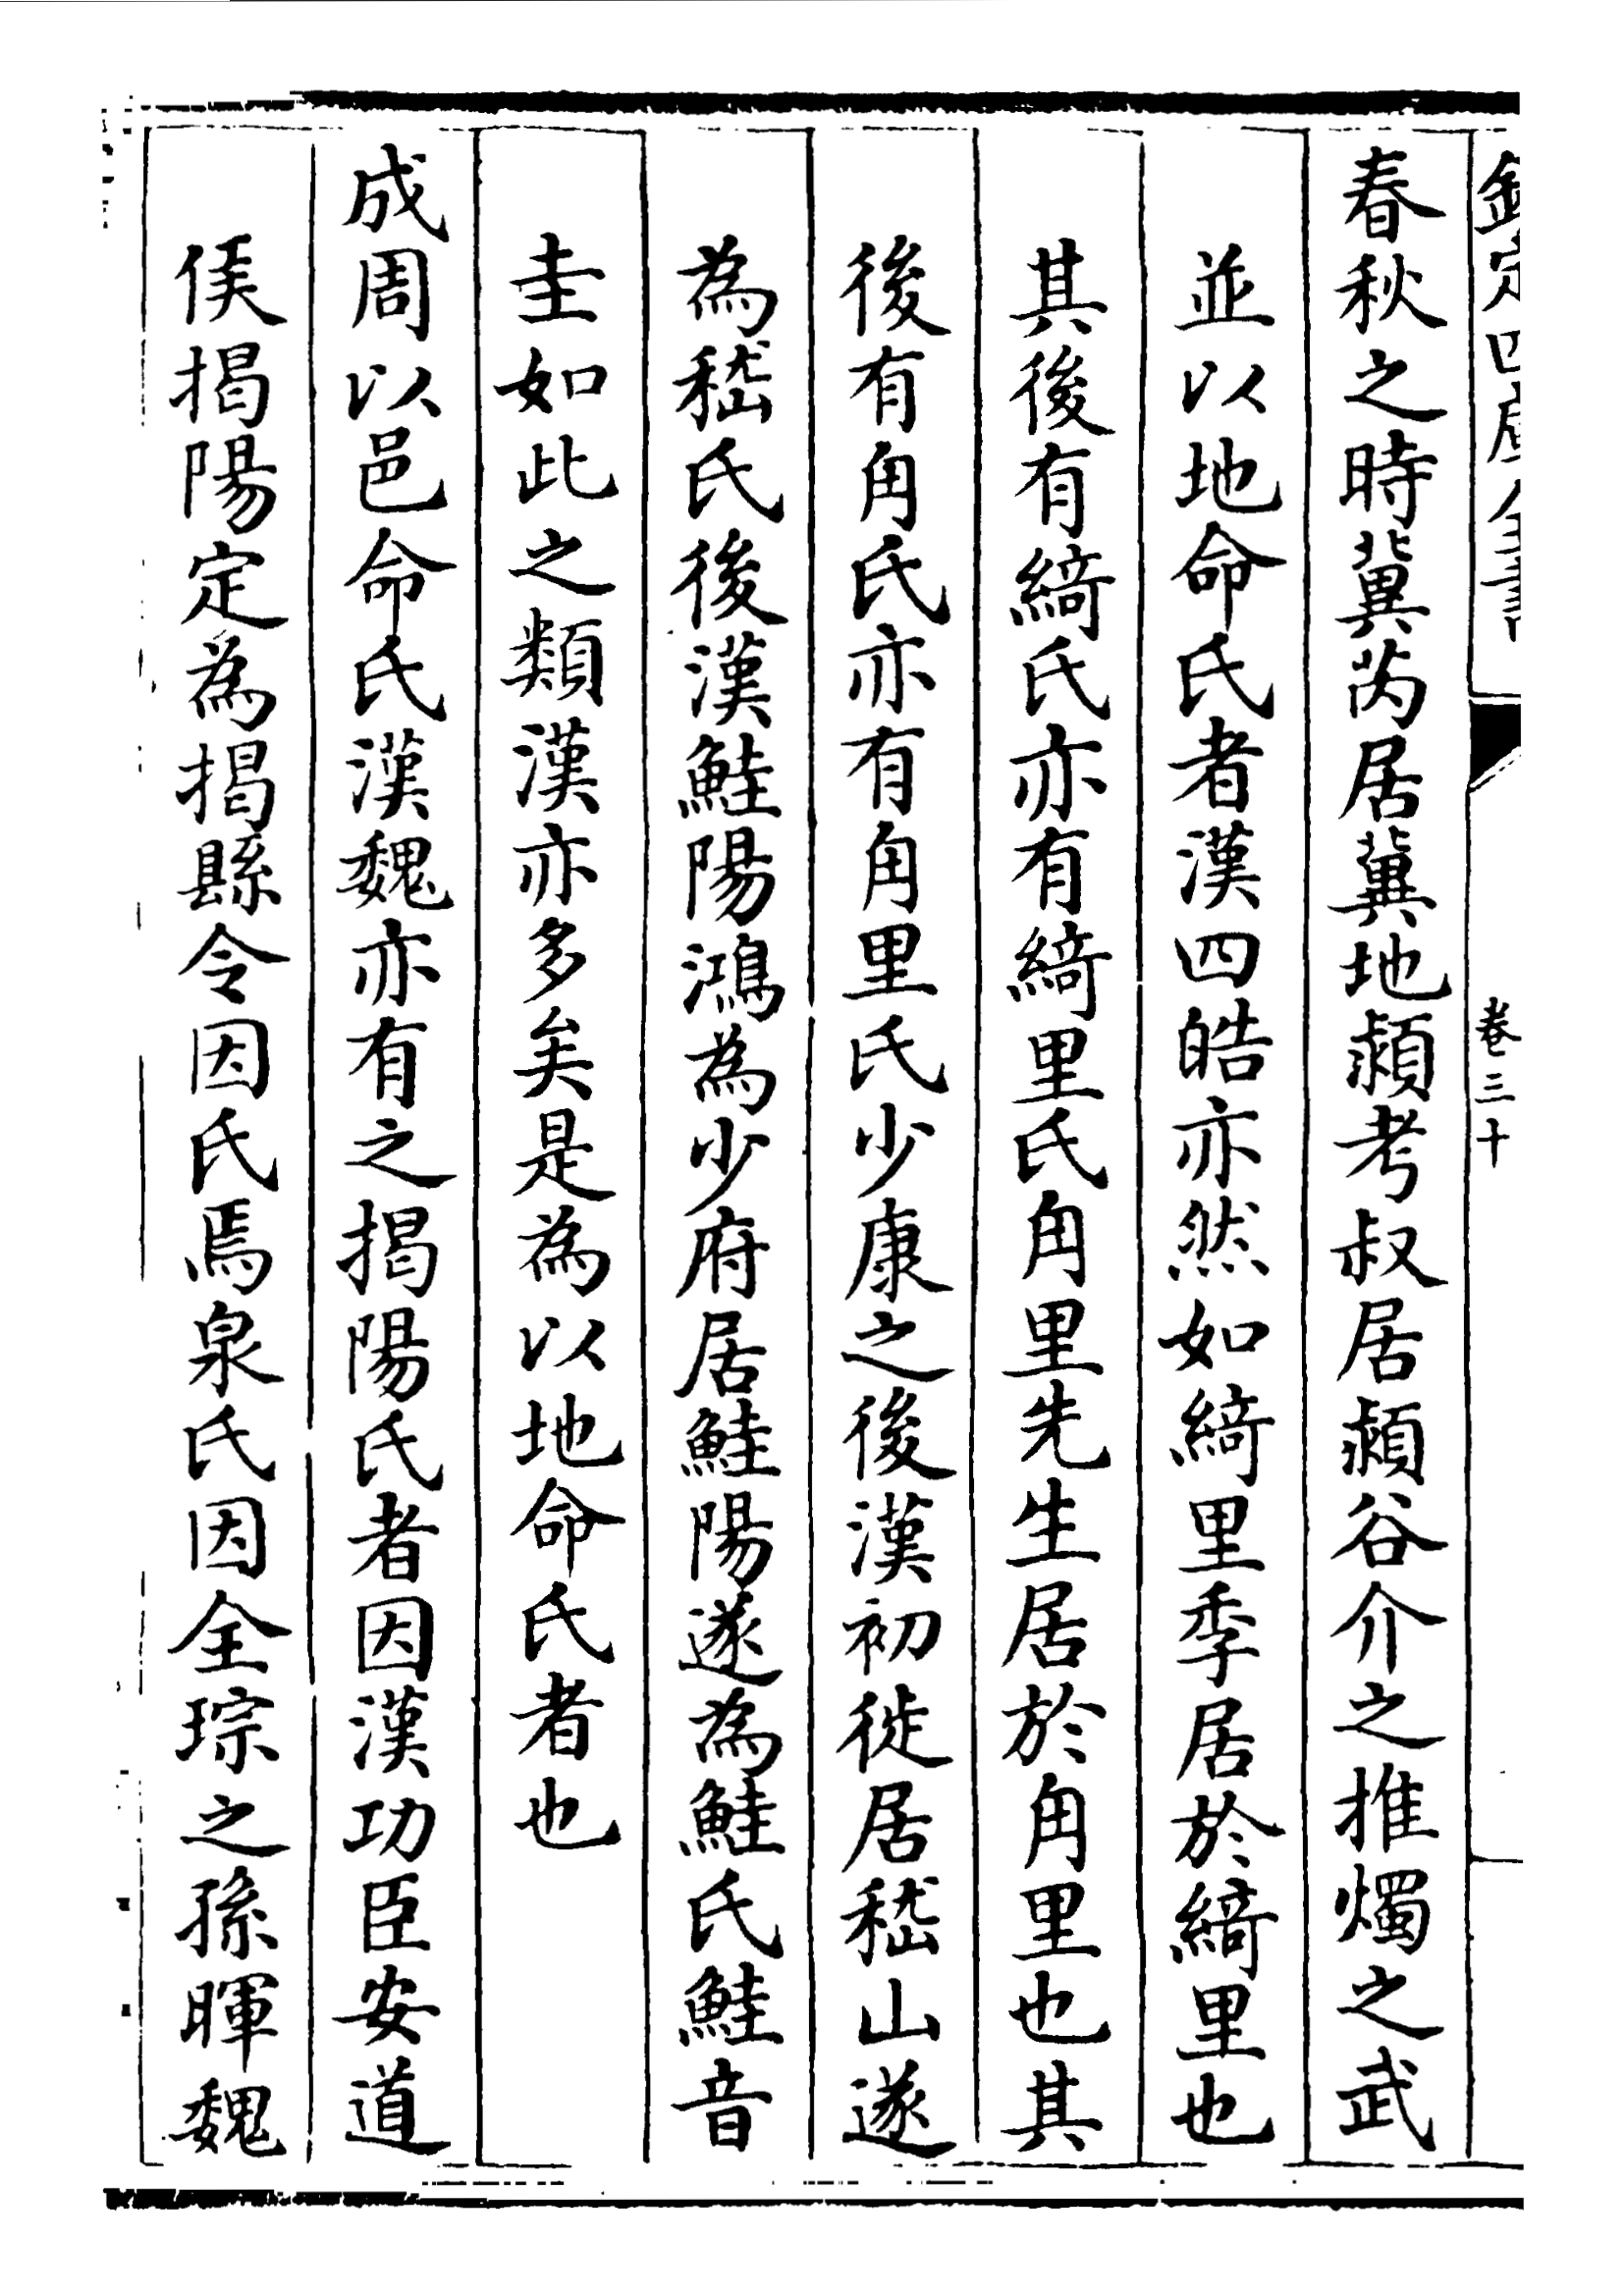 欽定四庫全書
卷三十
春秋之時冀芮居冀地潁考叔居潁谷介之推燭之武
並以地命氏者漢四皓亦然如綺里季居於綺里也
其後有綺氏亦有綺里氏甪里先生居於甪里也其
後有甪氏亦有甪里氏少康之後漢初徙居嵇山遂
為嵇氏後漢鮭陽鴻為少府居鮭陽遂為鮭氏鮭音
圭如此之類漢亦多矣是為以地命氏者也
成周以邑命氏漢魏亦有之揭陽氏者因漢功臣安道
侯揭陽定為揭縣令因氏焉泉氏因全琮之孫暉魏